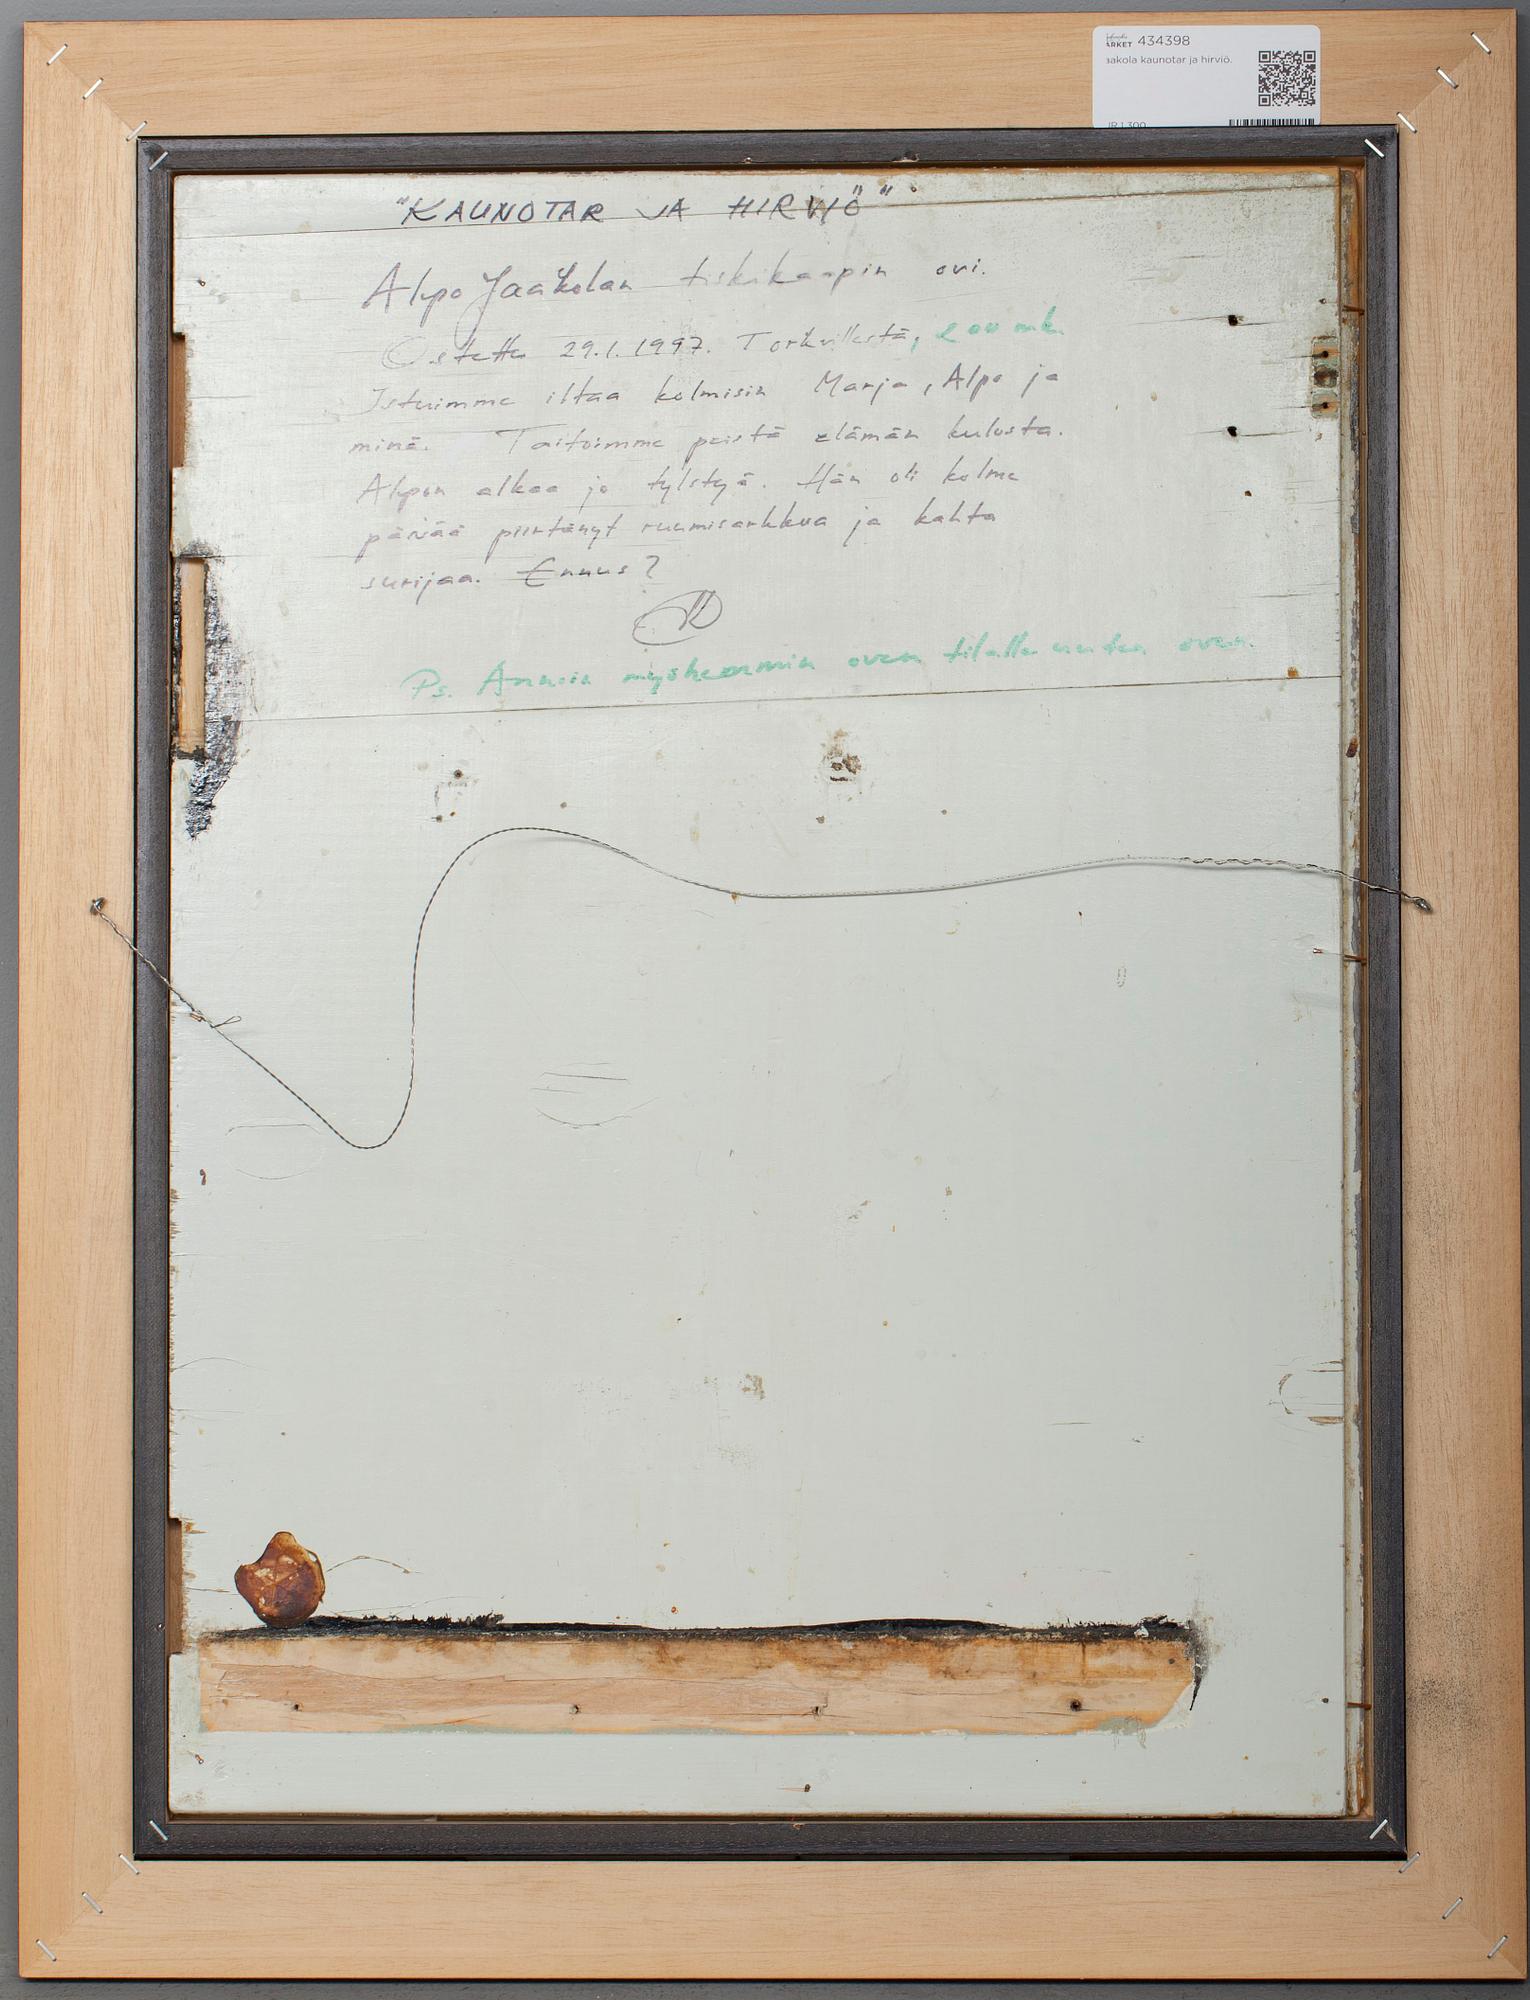 ARKET 434398
aakola kaunotar ja hirviö.
"KAUNOTAR JA HIRVIÖ"
Alpo Jaakolan tiskikaapin ovi.
Ostettu 29.1.1997. Torkvllstä, 200 mk.
Istuimme iltaa kolmisin Marja, Alpo ja
minä. Taitoimme peistä elämän kulusta.
Alpon alkaa jo tylstyä. Hän oli kolme
päivää piirtänyt ruumisarkkua ja kahta
surijaa. Ennus?
Ps. Annoin myöhemmin oven tilalle uuden oven.